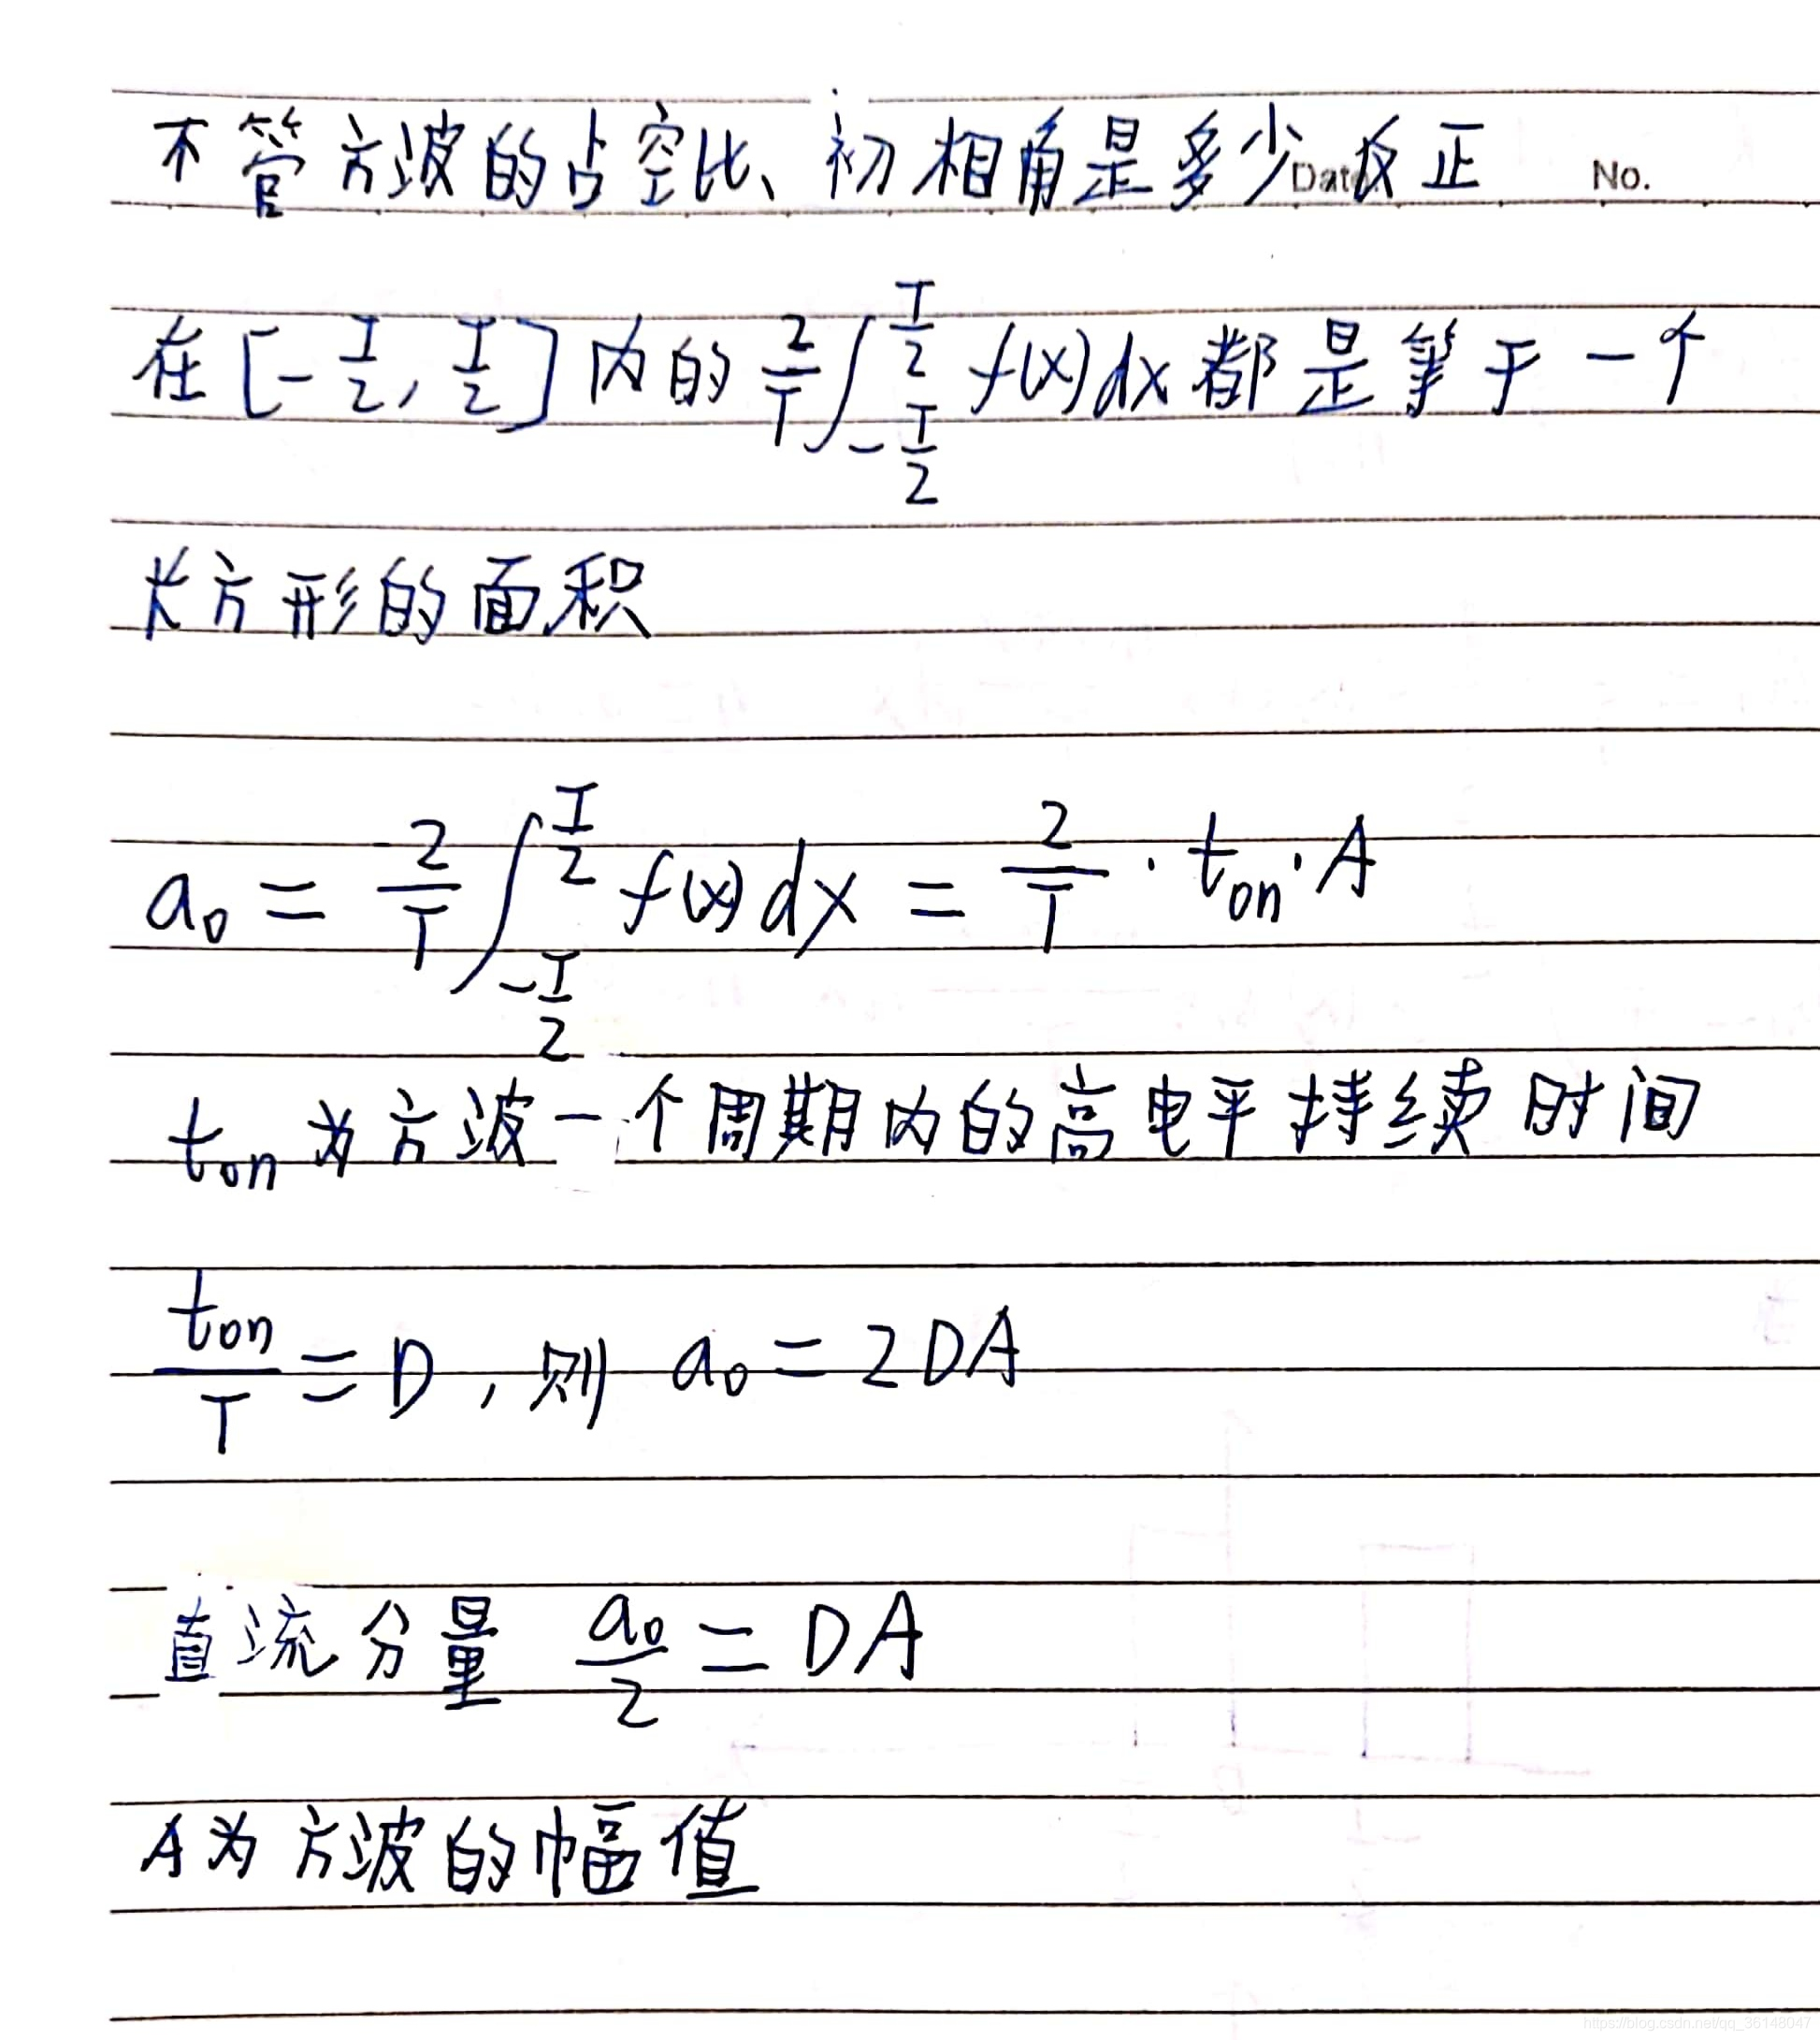 不管方波的占空比、初相角是多少 反正
Date. No.
在[-T/2, T/2]内的 2/T ∫_{-T/2}^{T/2} f(x)dx 都是等于一个
长方形的面积
a₀ = 2/T ∫_{-T/2}^{T/2} f(x)dx = 2/T · t_on · A
t_on 为方波一个周期内的高电平持续时间
t_on/T = D, 则 a₀ = 2DA
直流分量 a₀/2 = DA
A为方波的幅值
https://blog.csdn.net/qq_36148047